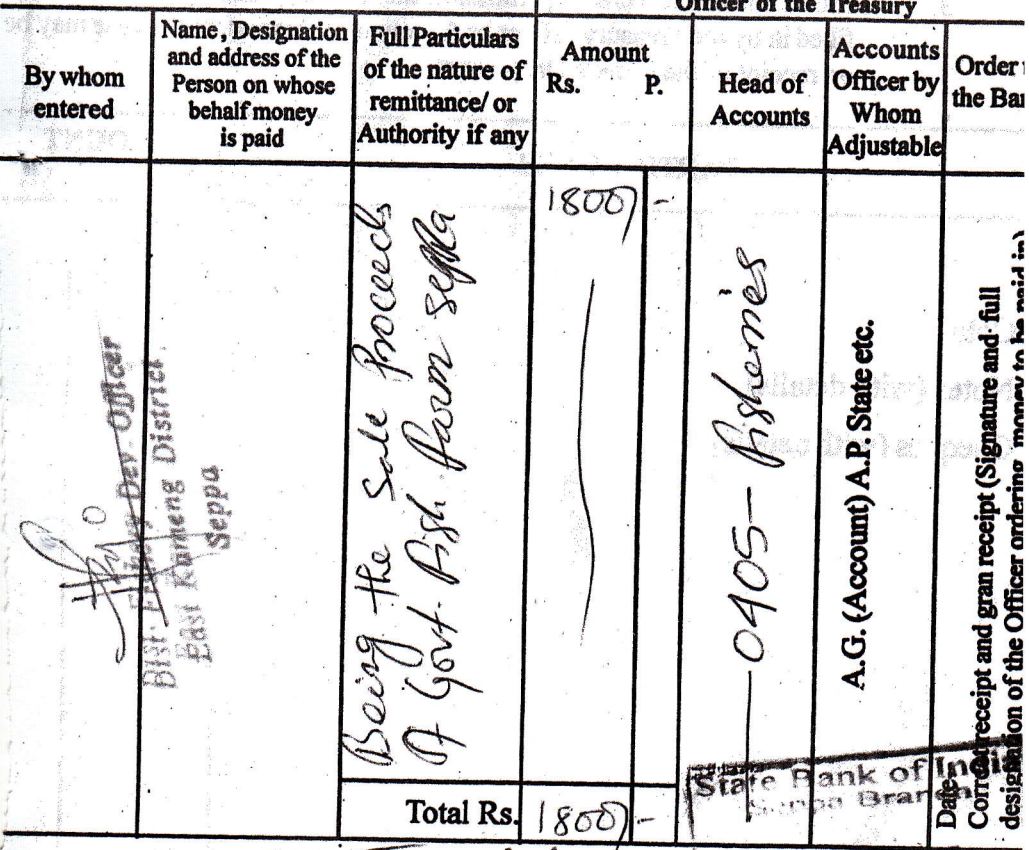 Officer of the Treasury
By whom
entered
Name, Designation
and address of the
Person on whose
behalf money
is paid
Full Particulars
of the nature of
remittance/ or
Authority if any
Amount
Rs. P.
Head of
Accounts
Accounts
Officer by
Whom
Adjustable
Order
the Ban
Dist. Fishery Dev. Officer
East Kameng District
Seppa
Being the Sale Proceeds
of Govt. Fish Farm Seppa
1800/-
0405- Fisheries
A.G. (Account) A.P. State etc.
Date
Correct receipt and gran receipt (Signature and full
designation of the Officer ordering money to be paid in)
State Bank of India
Seppa Branch
Total Rs. 1800/-